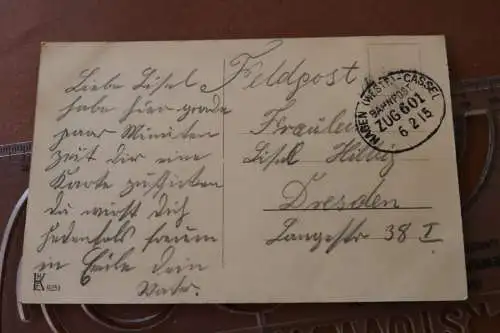 Liebe Lisel
habe hier grade
paar Minuten
Zeit dir eine
Karte zuschicken
du wirst dich
jedenfals freuen
in Eile dein
Vater.
Feldpost
HAGEN (WESTF)-CASSEL
BAHNPOST
ZUG 601
6 2 15
Fräulein
Lisel
Dresden
Langestr 38 I